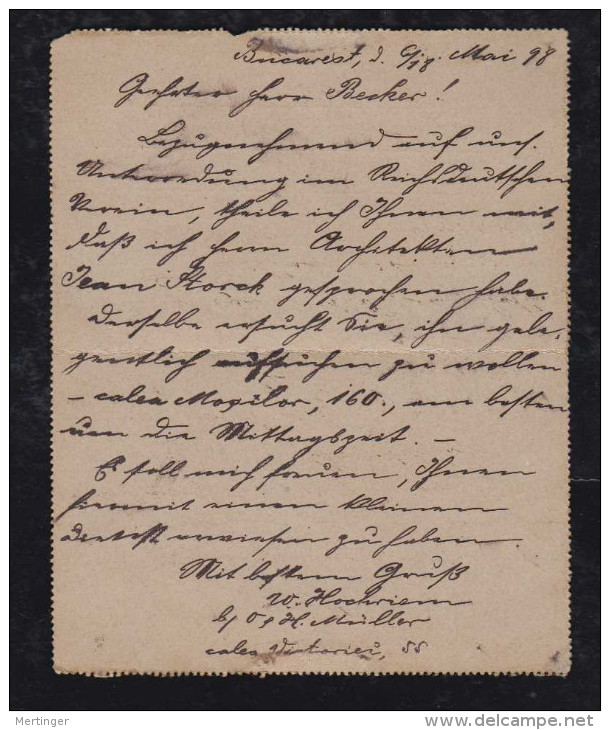 Bucarest, d. 6/18. Mai 98
Geehrter Herr Becker!
Bezugnehmend auf uns.
Unterredung im Reichsdeutschen
Verein, theile ich Ihnen mit,
daß ich Herrn Architekten
Jean Storck gesprochen habe.
Derselbe ersucht Sie, ihn gele-
gentlich aufsuchen zu wollen
- calea Moşilor, 160., am besten
um die Mittagszeit. -
Es soll mich freuen, Ihnen
hiermit einen kleinen
Dienst erwiesen zu haben.
Mit bestem Gruß
W.
H. Müller
calea Victoriei, 55
Mertinger
http://www.delcampe.net